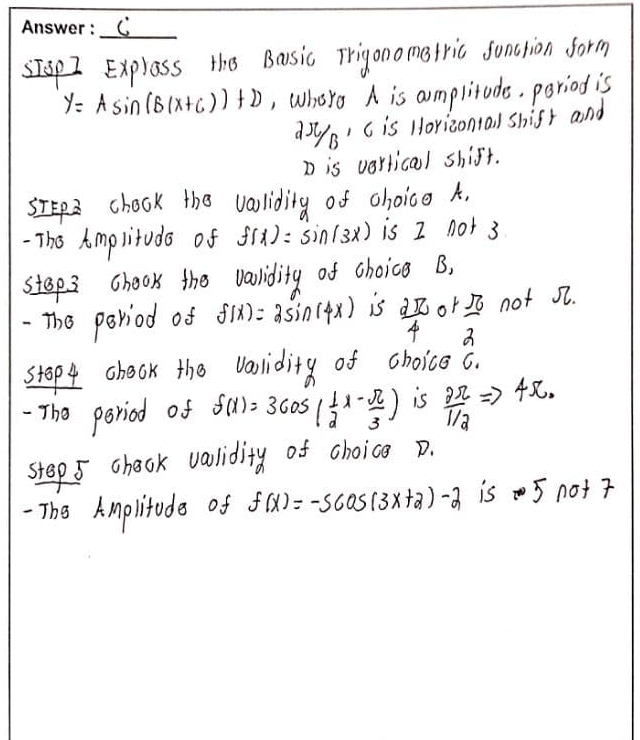 Answer : C
STEP 1 Express the Basic Trigonometric function form
Y = A sin (B(x+c)) + D, where A is amplitude. period is
2π/B, C is Horizontal shift and
D is vertical shift.
STEP 2 check the validity of choice A.
- The Amplitude of f(x) = sin(3x) is 1 not 3
Step 3 Check the validity of choice B,
- The period of f(x) = 2sin(4x) is 2π/4 or π/2 not π.
Step 4 check the validity of choice C.
- The period of f(x) = 3cos (1/2 x - π/3) is 2π/1/2 => 4π.
Step 5 check validity of choice D.
- The Amplitude of f(x) = -5cos(3x+2) -2 is 5 not 7